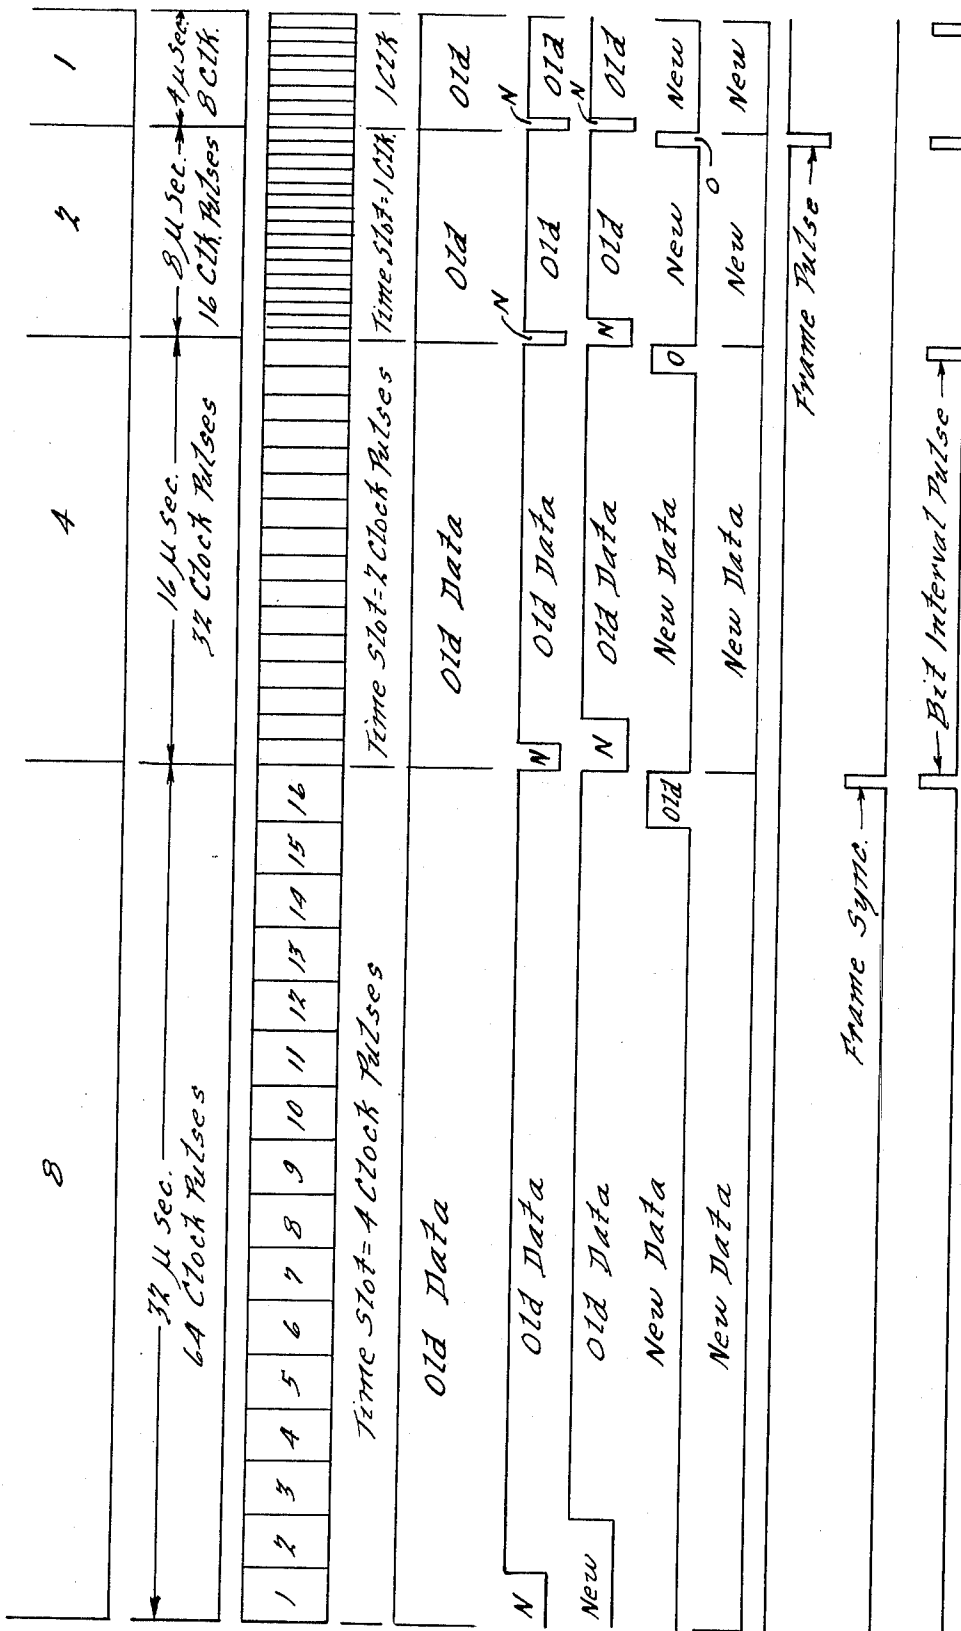 8 4 2 1
32 μ Sec. 16 μ Sec. 8 μ Sec. 4 μ Sec.
64 Clock Pulses 32 Clock Pulses 16 Clk Pulses 8 Clk.
1 2 3 4 5 6 7 8 9 10 11 12 13 14 15 16
Time Slot=4 Clock Pulses Time Slot=2 Clock Pulses Time Slot=1 Clk 1 Clk
Old Data Old Data Old Old
N N
N Old Data N Old Data Old Old
New Old Data N Old Data N Old Old
New Data Old New Data O New New
O
New Data New Data New New
Frame Pulse
Frame Sync.
Bit Interval Pulse